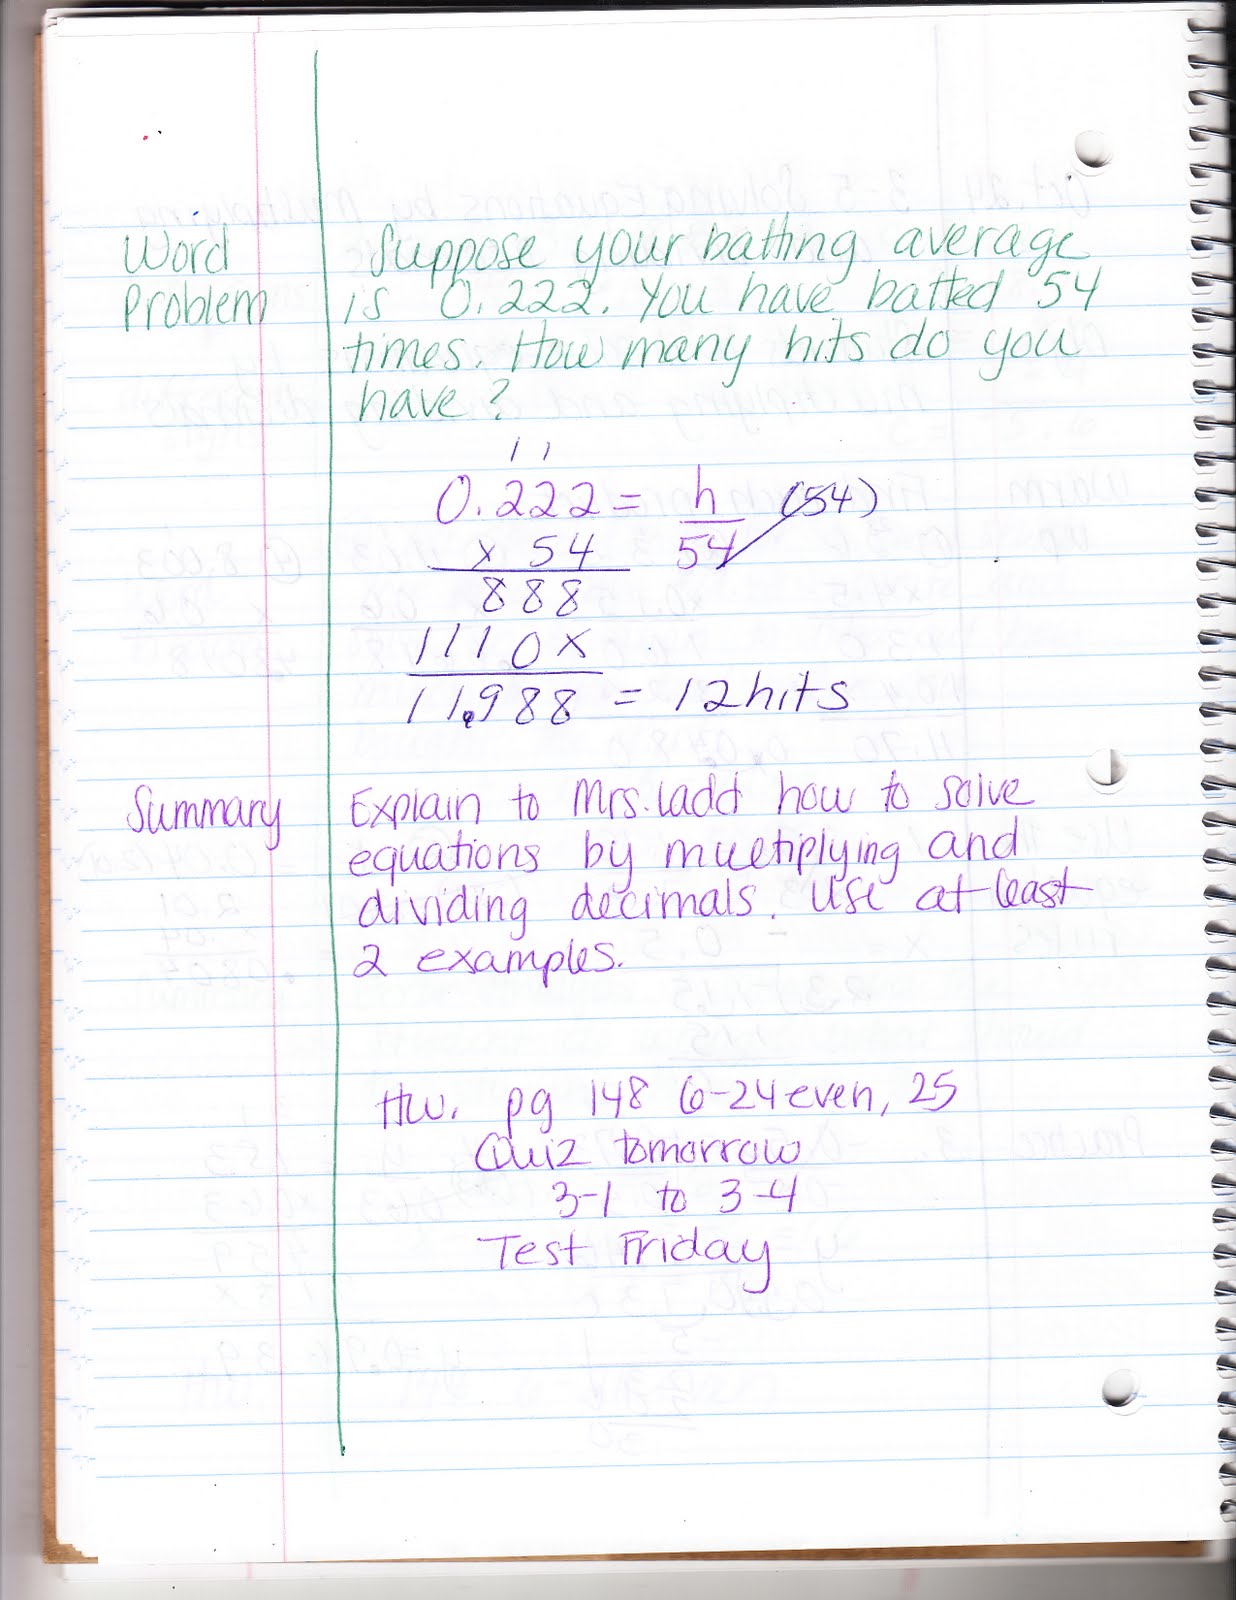 Word
Problem
Suppose your batting average
is 0.222. You have batted 54
times. How many hits do you
have?
1 1
0.222 = h/54 (54)
x 54
888
1110x
11.988 = 12 hits
Summary
Explain to Mrs. Ladd how to solve
equations by multiplying and
dividing decimals. Use at least
2 examples.
HW. pg 148 6-24 even, 25
Quiz tomorrow
3-1 to 3-4
Test Friday